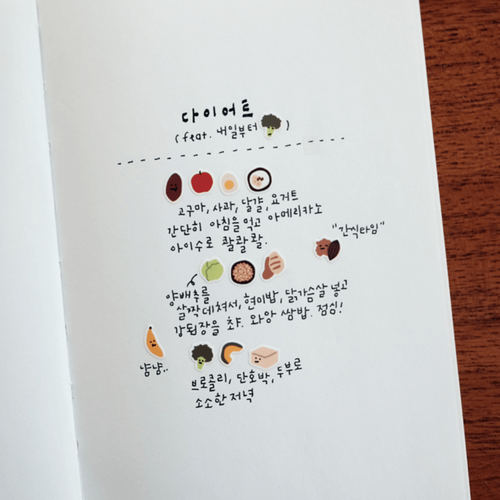 다이어트
(feat. 내일부터 )
고구마, 사과, 달걀, 요거트
간단히 아침을 먹고 아메리카노
아이수로 콸콸콸.
"간식타임"
양배추를
살짝 데쳐서, 현미밥, 닭가슴살 넣고
강된장을 촤F. 와앙 쌈밥. 점심!
냠냠..
브로콜리, 단호박, 두부로
소소한 저녁